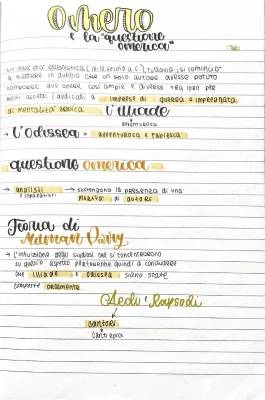 Omero
e la "questione
omerica"
età ellenistica (IV-III secolo a.C.), tuttavia, si cominciò
a mettere in dubbio che un solo autore avesse potuto
comporre due opere così ampie e diverse tra loro per
molti aspetti (dedicati a imprese di guerra e impregnata
di mentalità eroica L'Iliade
→ L'Odissea: avventurosa e fiabesca
questione omerica
→ analisti → suppongono la presenza di una
o separatisti pluralità di autori
Teoria di
Milman Parry
↳ L'intuizione degli studiosi che si concentrarono
su questo aspetto porterebbe quindi a concludere
che Iliade e Odissea siano state
composte oralmente
Aedi e Rapsodi
cantori
canto epico